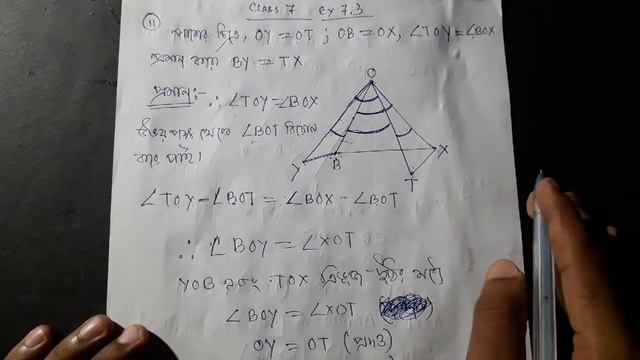 Class 7 Ex 7.3
11 পাশের চিত্রে, OY = OT ; OB = OX, ∠TOY = ∠BOX
প্রমাণ করো BY = TX
প্রমাণ:- ∴ ∠TOY = ∠BOX
উভয় পক্ষ থেকে ∠BOT বিয়োগ
করে পাই।
O
Y B T X
∠TOY - ∠BOT = ∠BOX - ∠BOT
∴ ∠BOY = ∠XOT
YOB এবং TOX ত্রিভুজ দুইটির মধ্যে
∠BOY = ∠XOT
OY = OT (প্রদত্ত